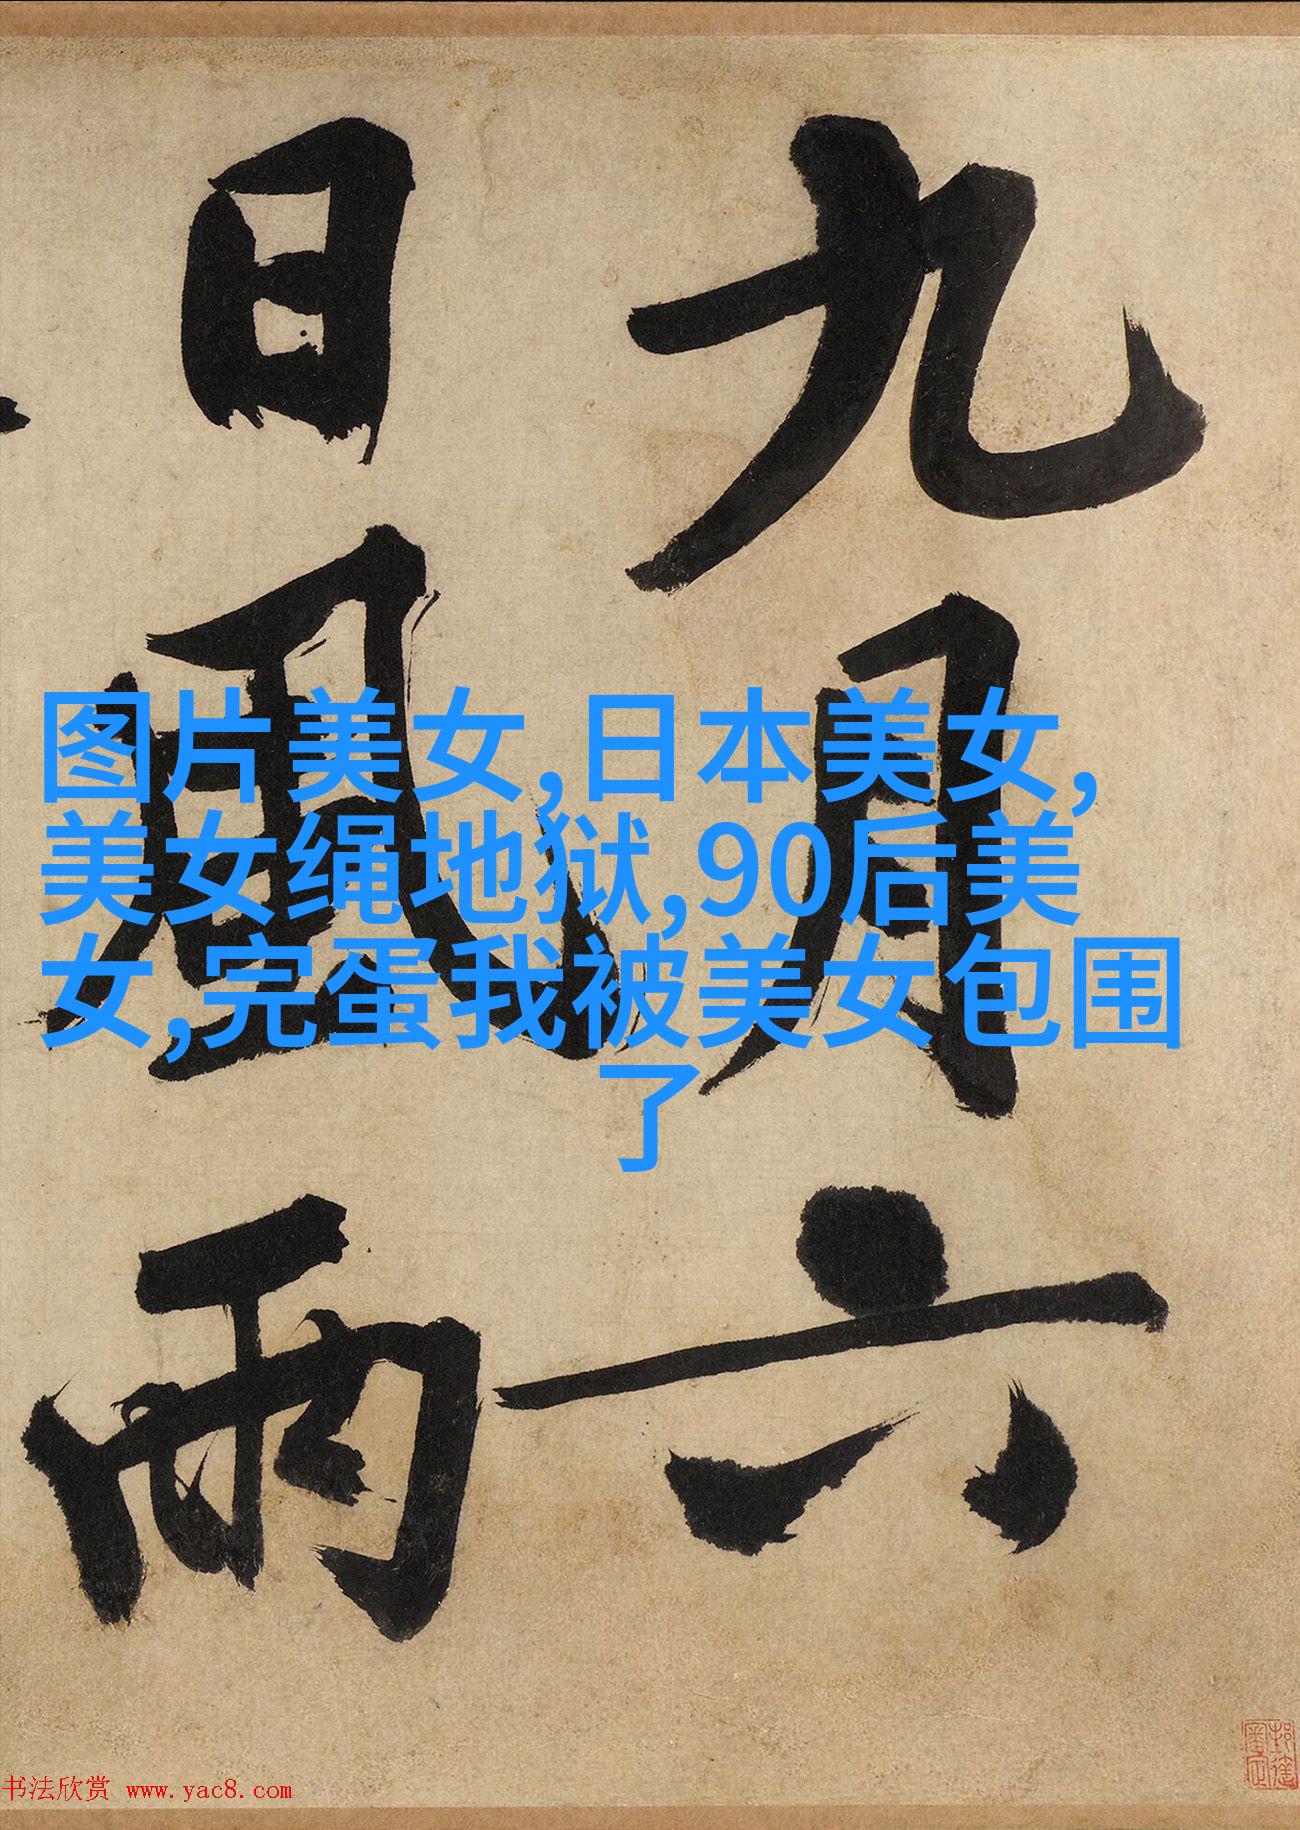 九月六
日風雨
图片美女,日本美女,
美女绳地狱,90后美
女,完蛋我被美女包围
了
书法欣赏 www.yac8.com